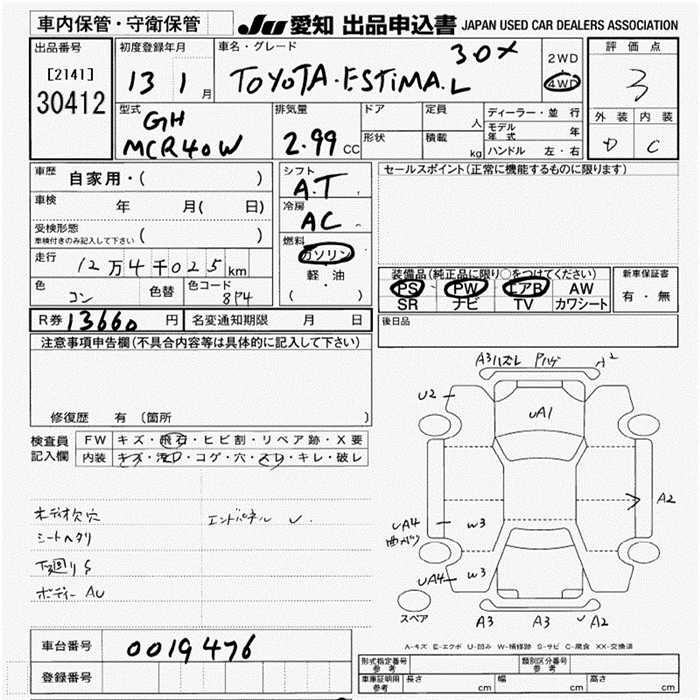 車内保管・守衛保管
JU 愛知 出品申込書 JAPAN USED CAR DEALERS ASSOCIATION
出品番号
[2141]
30412
初度登録年月
13 1 月
車名・グレード
3.0X
TOYOTA・ESTIMA.L
2WD
4WD
評価点
3
外装 内装
D C
型式
GH
MCR40W
排気量
2.99 CC
ドア
形状
定員 人
積載 kg
ディーラー・並行
モデル年式 年
ハンドル 左・右
車歴 自家用・( )
車検 年 月( 日)
受検形態
車検付きのみ記入して下さい ( )
走行 12万4千025km
色 コン 色替 色コード 8P4
シフト
A.T
冷房
AC
燃料
ガソリン
軽・油
( ・ )
セールスポイント(正常に機能するものに限ります)
装備品(純正品に限り○をつけてください)
PS PW エアB AW
SR ナビ TV カワシート
新車保証書
有・無
R券 13660 円 名変通知期限 月 日
後日品
注意事項申告欄(不具合内容等は具体的に記入して下さい)
修復歴 有 (箇所 )
検査員記入欄
FW キズ・飛石・ヒビ割・リペア跡・X要
内装 キズ・汚れ・コゲ・穴・スレ・キレ・破レ
シートヘタリ
下廻りS
ボディーAU
エンドパネル U
A3ハズレ Pハゲ
U2
UA1
A2
UA4
W3
UA4
W3
A3 A3 A2
スペア
A-キズ E-エクボ U-凹み W-補修跡 S-サビ C-腐食 XX-交換済
車台番号 0019476
登録番号
形式指定番号 参考
類別区分番号 参考
車庫証明用 参考 長さ cm 幅 cm 高さ cm